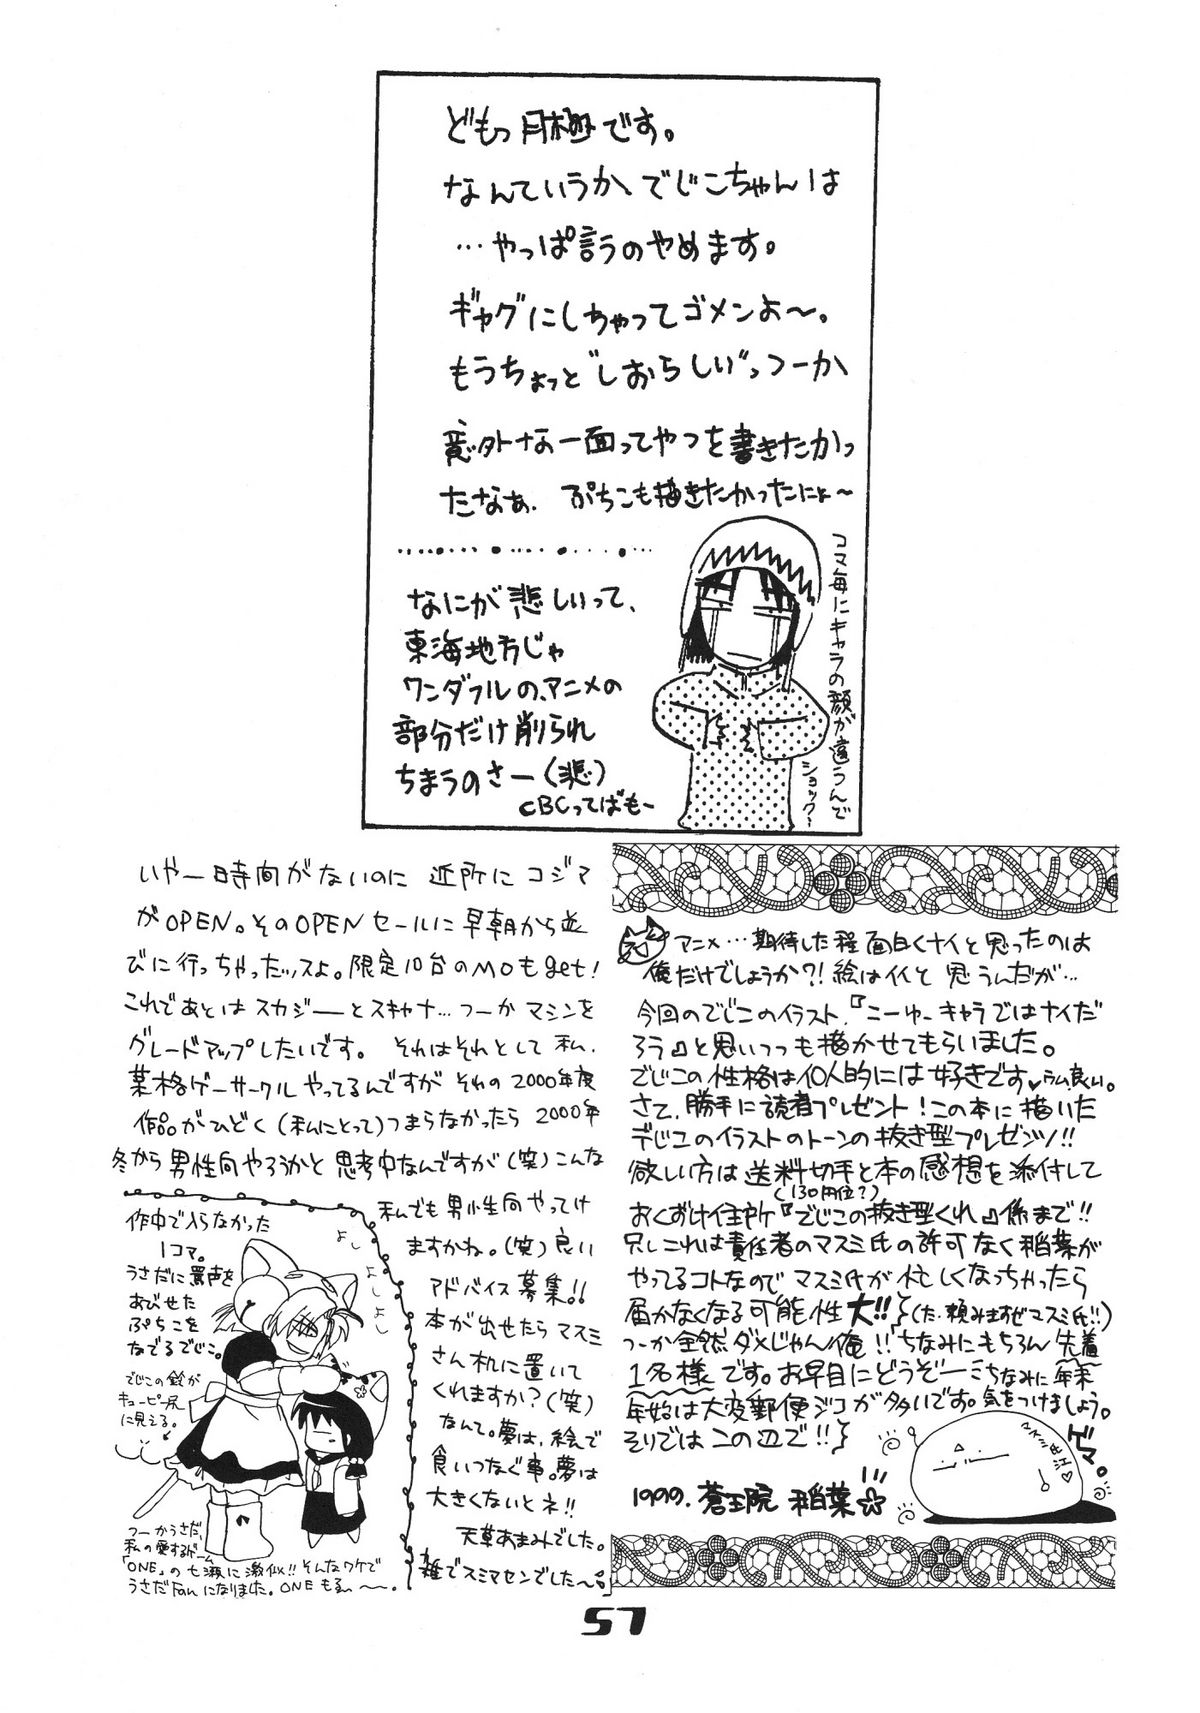 どもっ月極です。
なんていうか、でじこちゃんは
…やっぱ言うのやめます。
ギャグにしちゃってゴメンよ〜。
もうちょっと"しおらしい"っつーか
意外な一面ってやつを書きたかっ
たなぁ、ぷちこも描きたかったにょ〜
なにが悲しいって、
東海地方じゃ
ワンダフルの、アニメの
部分だけ削られ
ちまうのさー(悲)
CBCってばもー
コマ毎にキャラの顔が違うんで
ショック〜
いやー時間がないのに 近所に コジマ
がOPEN。そのOPENセールに早朝から並
びに行っちゃったッスよ。限定10台のMOもget!
これであとは スカジーとスキャナ…つーか マシンを
グレードアップしたいです。 それはそれとして 私、
葉格ゲーサークル やってるんですが その 2000年度
作品がひどく(私にとって)つまらなかったら 2000年
冬から 男性向やろうかと 思考中なんですが(笑)こんな
私でも 男性向やってけ
ますかね。(笑)良い
アドバイス募集!!
本が出せたら マスミ
さん机に置いて
くれますか?(笑)
なんて。夢は、絵で
食いつなぐ事。夢は
大きくないとネ!!
天草あまみでした。
雑でスミマセンでした〜
作中で入らなかった
1コマ。
うさだに罵声を
あびせた
ぷちこを
なでるでじこ。
よし
よし
よし
でじこの鈴が
キューピー尻
に見える。
つーかうさだ、
私の愛するゲーム
「ONE」の七瀬に激似!! そんなワケで
うさだfanになりました。ONEもえ〜。
アニメ…期待した程面白くナイと思ったのは
俺だけでしょうか?! 絵はイイと 思うんだが…
今回のでじこのイラスト、『こーゆーキャラではナイだ
ろう』と思いつつも描かせてもらいました。
でじこの性格は個人的には好きです♥ラム良い。
さて、勝手に読者プレゼント!この本に描いた
デじこのイラストのトーンの抜き型プレゼンツ!!
欲しい方は 送料切手と本の感想を添付して
(130円位?)
おくずけ住所『でじこの抜き型くれ』係まで!!
只しこれは責任者のマスミ氏の許可なく稲葉が
やってるコトなので マスミ氏が忙しくなっちゃったら
届かなくなる可能性大!!(た、頼みますぜマスミ氏!!)
つーか全然ダメじゃん俺!! ちなみにもちろん先着
1名様です。お早目にどうぞーちなみに年末
年始は大変郵便ジコが多いです。気をつけましょう。
そりではこの辺で!!
1999. 蒼王院 稲葉☆
ゲマ。
57